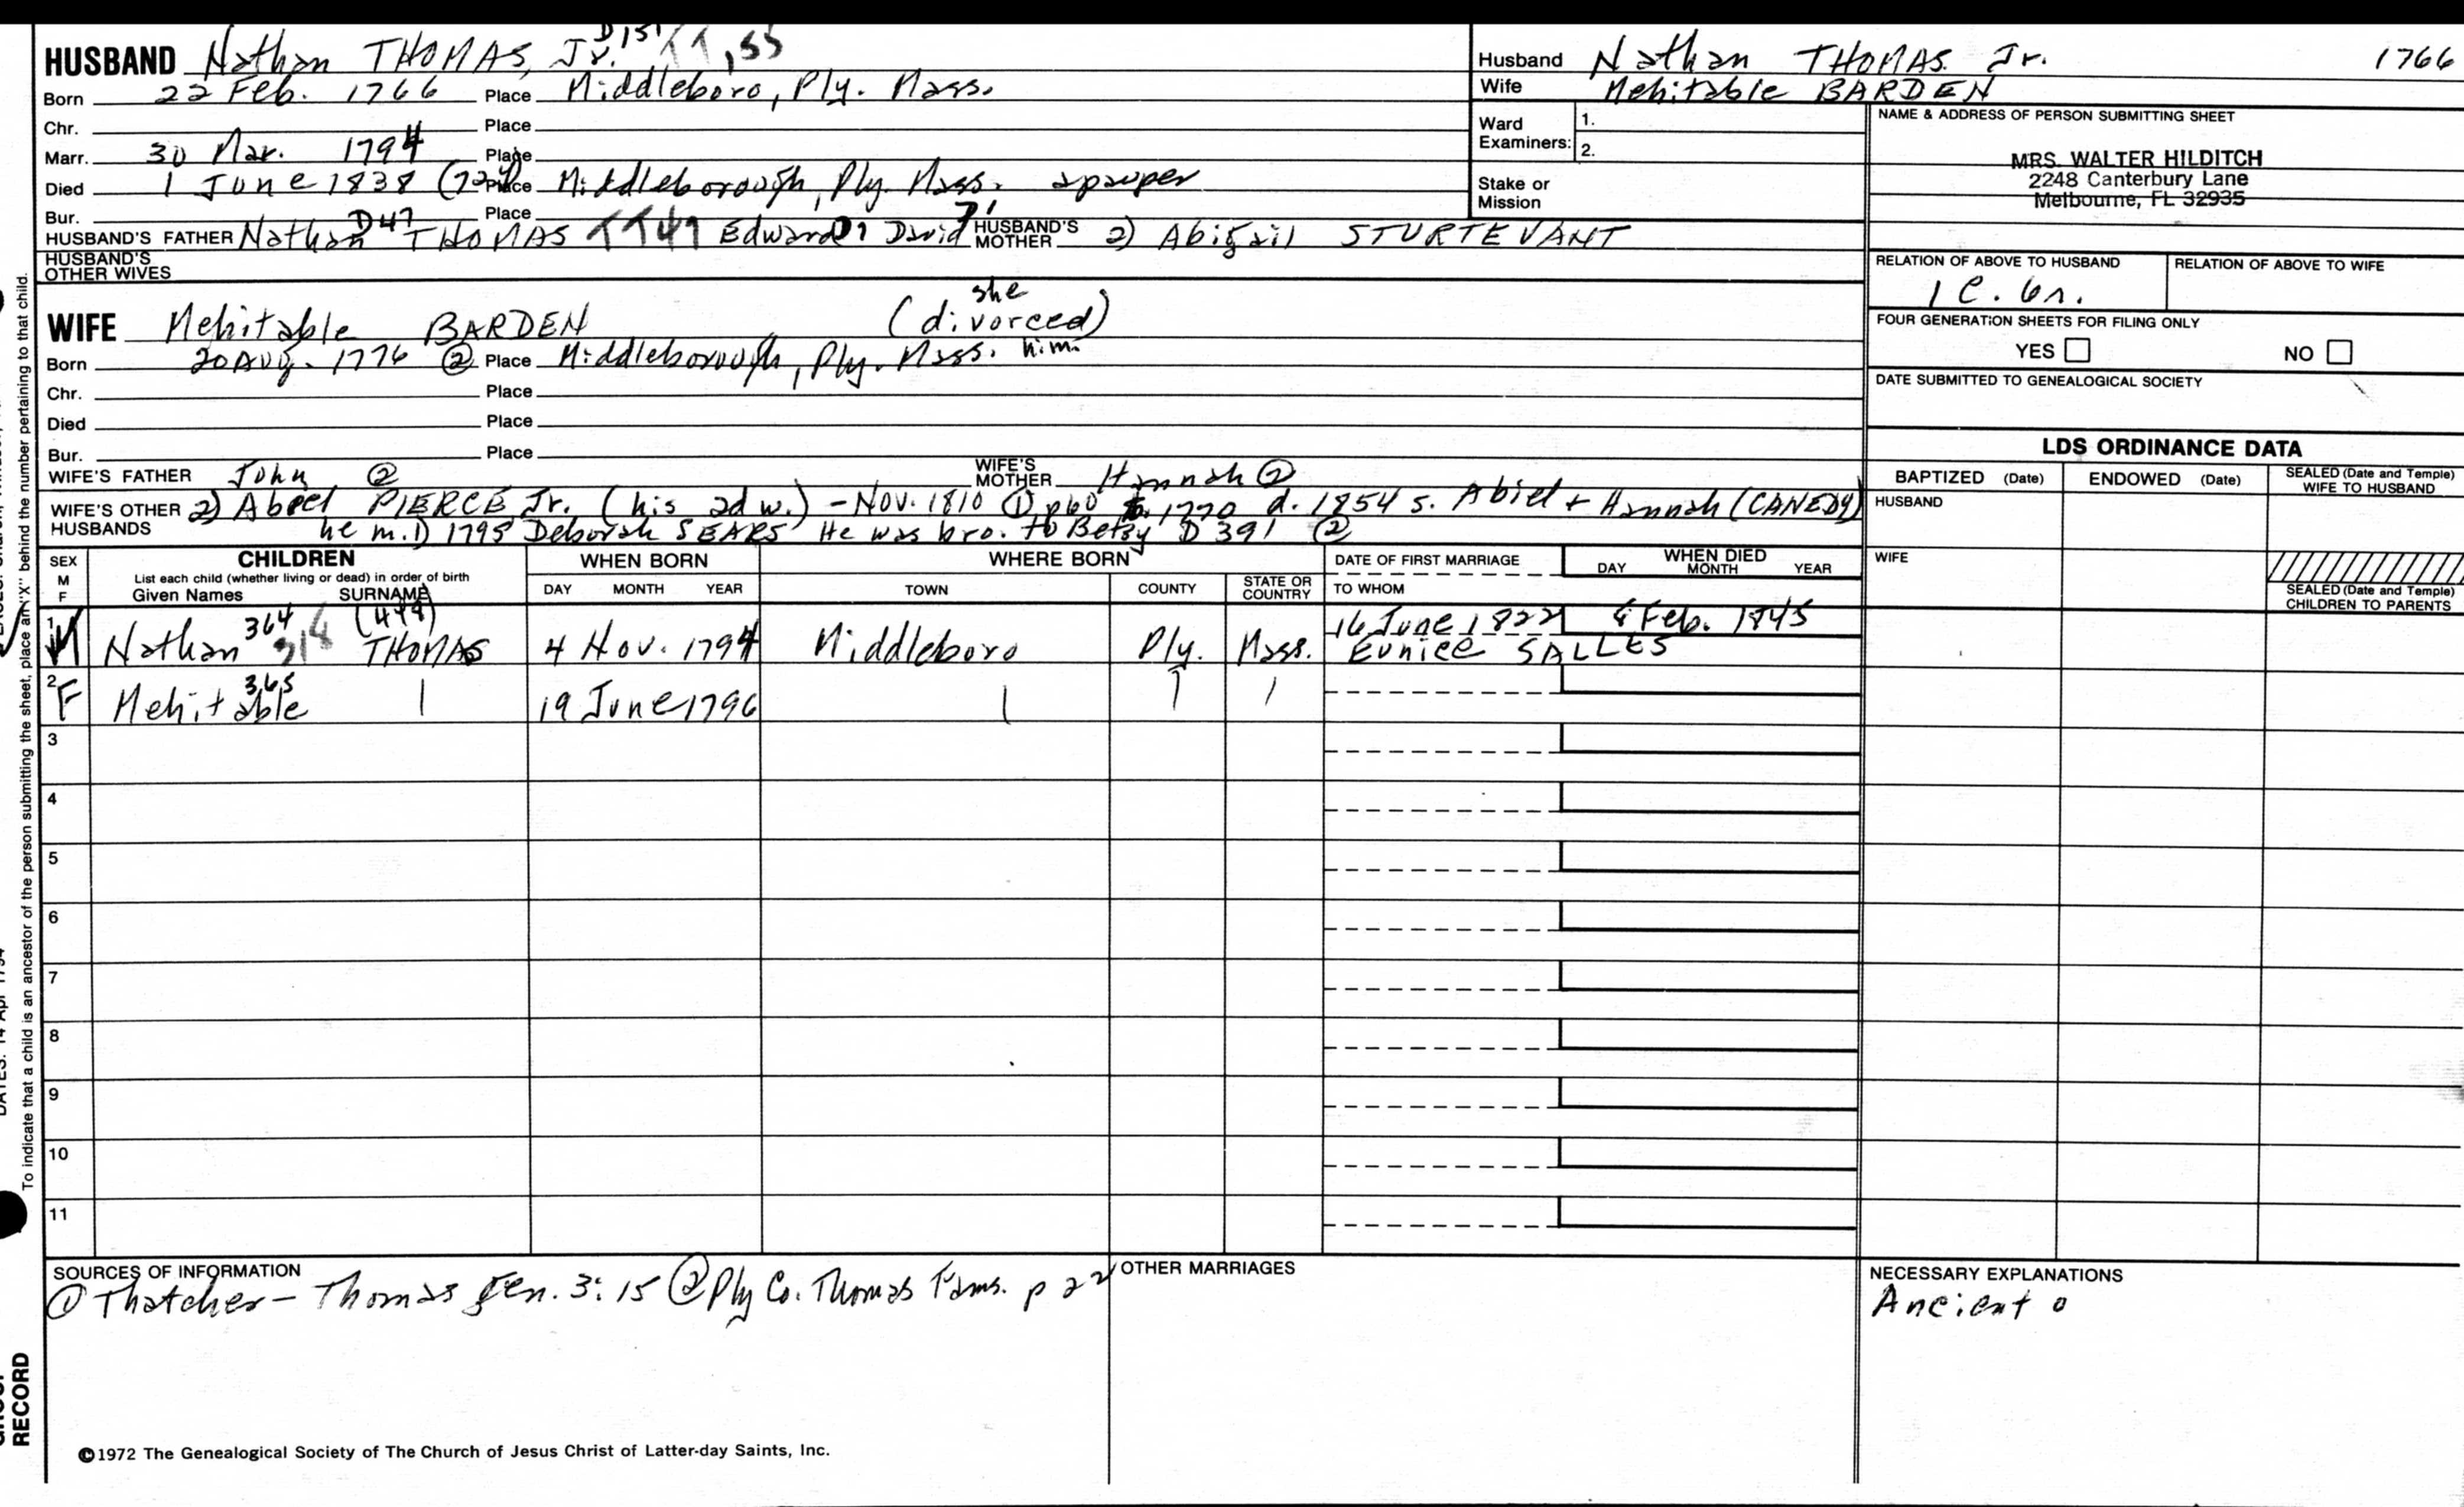 HUSBAND Nathan THOMAS, Jr. D151
Born 22 Feb. 1766 Place Middleboro, Ply. Mass.
Chr. Place
Marr. 30 Mar. 1794 Place
Died 1 June 1838 Place Middleborough, Ply. Mass. a pauper
Bur. Place
HUSBAND'S FATHER Nathan D47 THOMAS TT47 Edward David HUSBAND'S MOTHER 2) Abigail STURTEVANT
HUSBAND'S OTHER WIVES
WIFE Mehitable BARDEN (she divorced him)
Born 20 Aug. 1776 ② Place Middleborough, Ply. Mass.
Chr. Place
Died Place
Bur. Place
WIFE'S FATHER John ② WIFE'S MOTHER Hannah ②
WIFE'S OTHER HUSBANDS 2) Abeel PIERCE Jr. (his 2d w.) - Nov. 1810 ① p60 b. 1770 d. 1854 s. Abiel + Hannah (CANEDY)
he m. 1) 1795 Deborah SEARS He was bro. to Betsy D 391 ②
Husband Nathan THOMAS Jr. 1766
Wife Mehitable BARDEN
Ward Examiners: 1.
2.
Stake or Mission
NAME & ADDRESS OF PERSON SUBMITTING SHEET
MRS. WALTER HILDITCH
2248 Canterbury Lane
Melbourne, FL 32935
RELATION OF ABOVE TO HUSBAND
1 C. 6r.
RELATION OF ABOVE TO WIFE
FOUR GENERATION SHEETS FOR FILING ONLY
YES NO
DATE SUBMITTED TO GENEALOGICAL SOCIETY
LDS ORDINANCE DATA
BAPTIZED (Date) ENDOWED (Date) SEALED (Date and Temple) WIFE TO HUSBAND
HUSBAND
WIFE
SEALED (Date and Temple) CHILDREN TO PARENTS
SEX M F
CHILDREN
List each child (whether living or dead) in order of birth
Given Names SURNAME
WHEN BORN
DAY MONTH YEAR
WHERE BORN
TOWN COUNTY STATE OR COUNTRY
DATE OF FIRST MARRIAGE
TO WHOM
WHEN DIED
DAY MONTH YEAR
1 M Nathan 364 THOMAS 4 Nov. 1794 Middleboro Ply. Mass. 16 June 1822 Feb. 1845
Eunice SALLES
2 F Mehitable 365 19 June 1796
3
4
5
6
7
8
9
10
11
SOURCES OF INFORMATION
① Thatcher - Thomas gen. 3:15 ② Ply Co. Thomas Fams. p 22
OTHER MARRIAGES
NECESSARY EXPLANATIONS
Ancient o
©1972 The Genealogical Society of The Church of Jesus Christ of Latter-day Saints, Inc.
To indicate that a child is an ancestor of the person submitting the sheet, place an "X" behind the number pertaining to that child.
DATES: 14 Apr 1794
RECORD